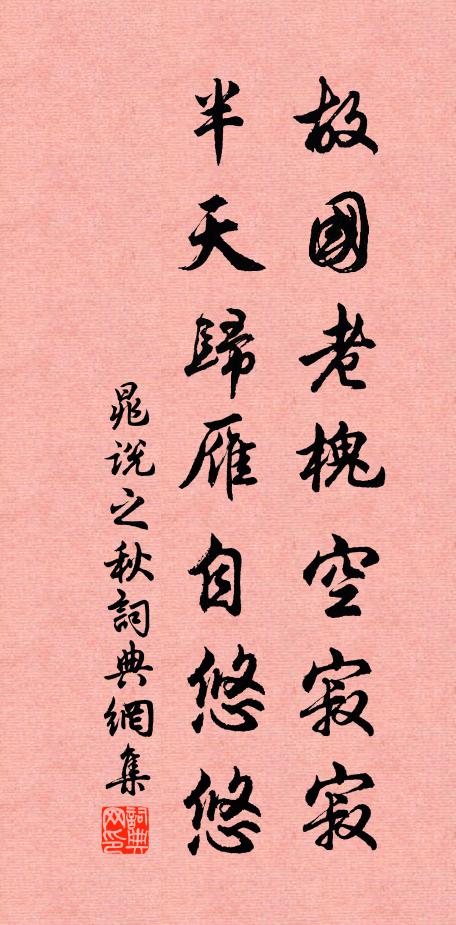 故國老槐空寂寂
半天歸雁自悠悠
晁說之秋詞典網集
詞典网印